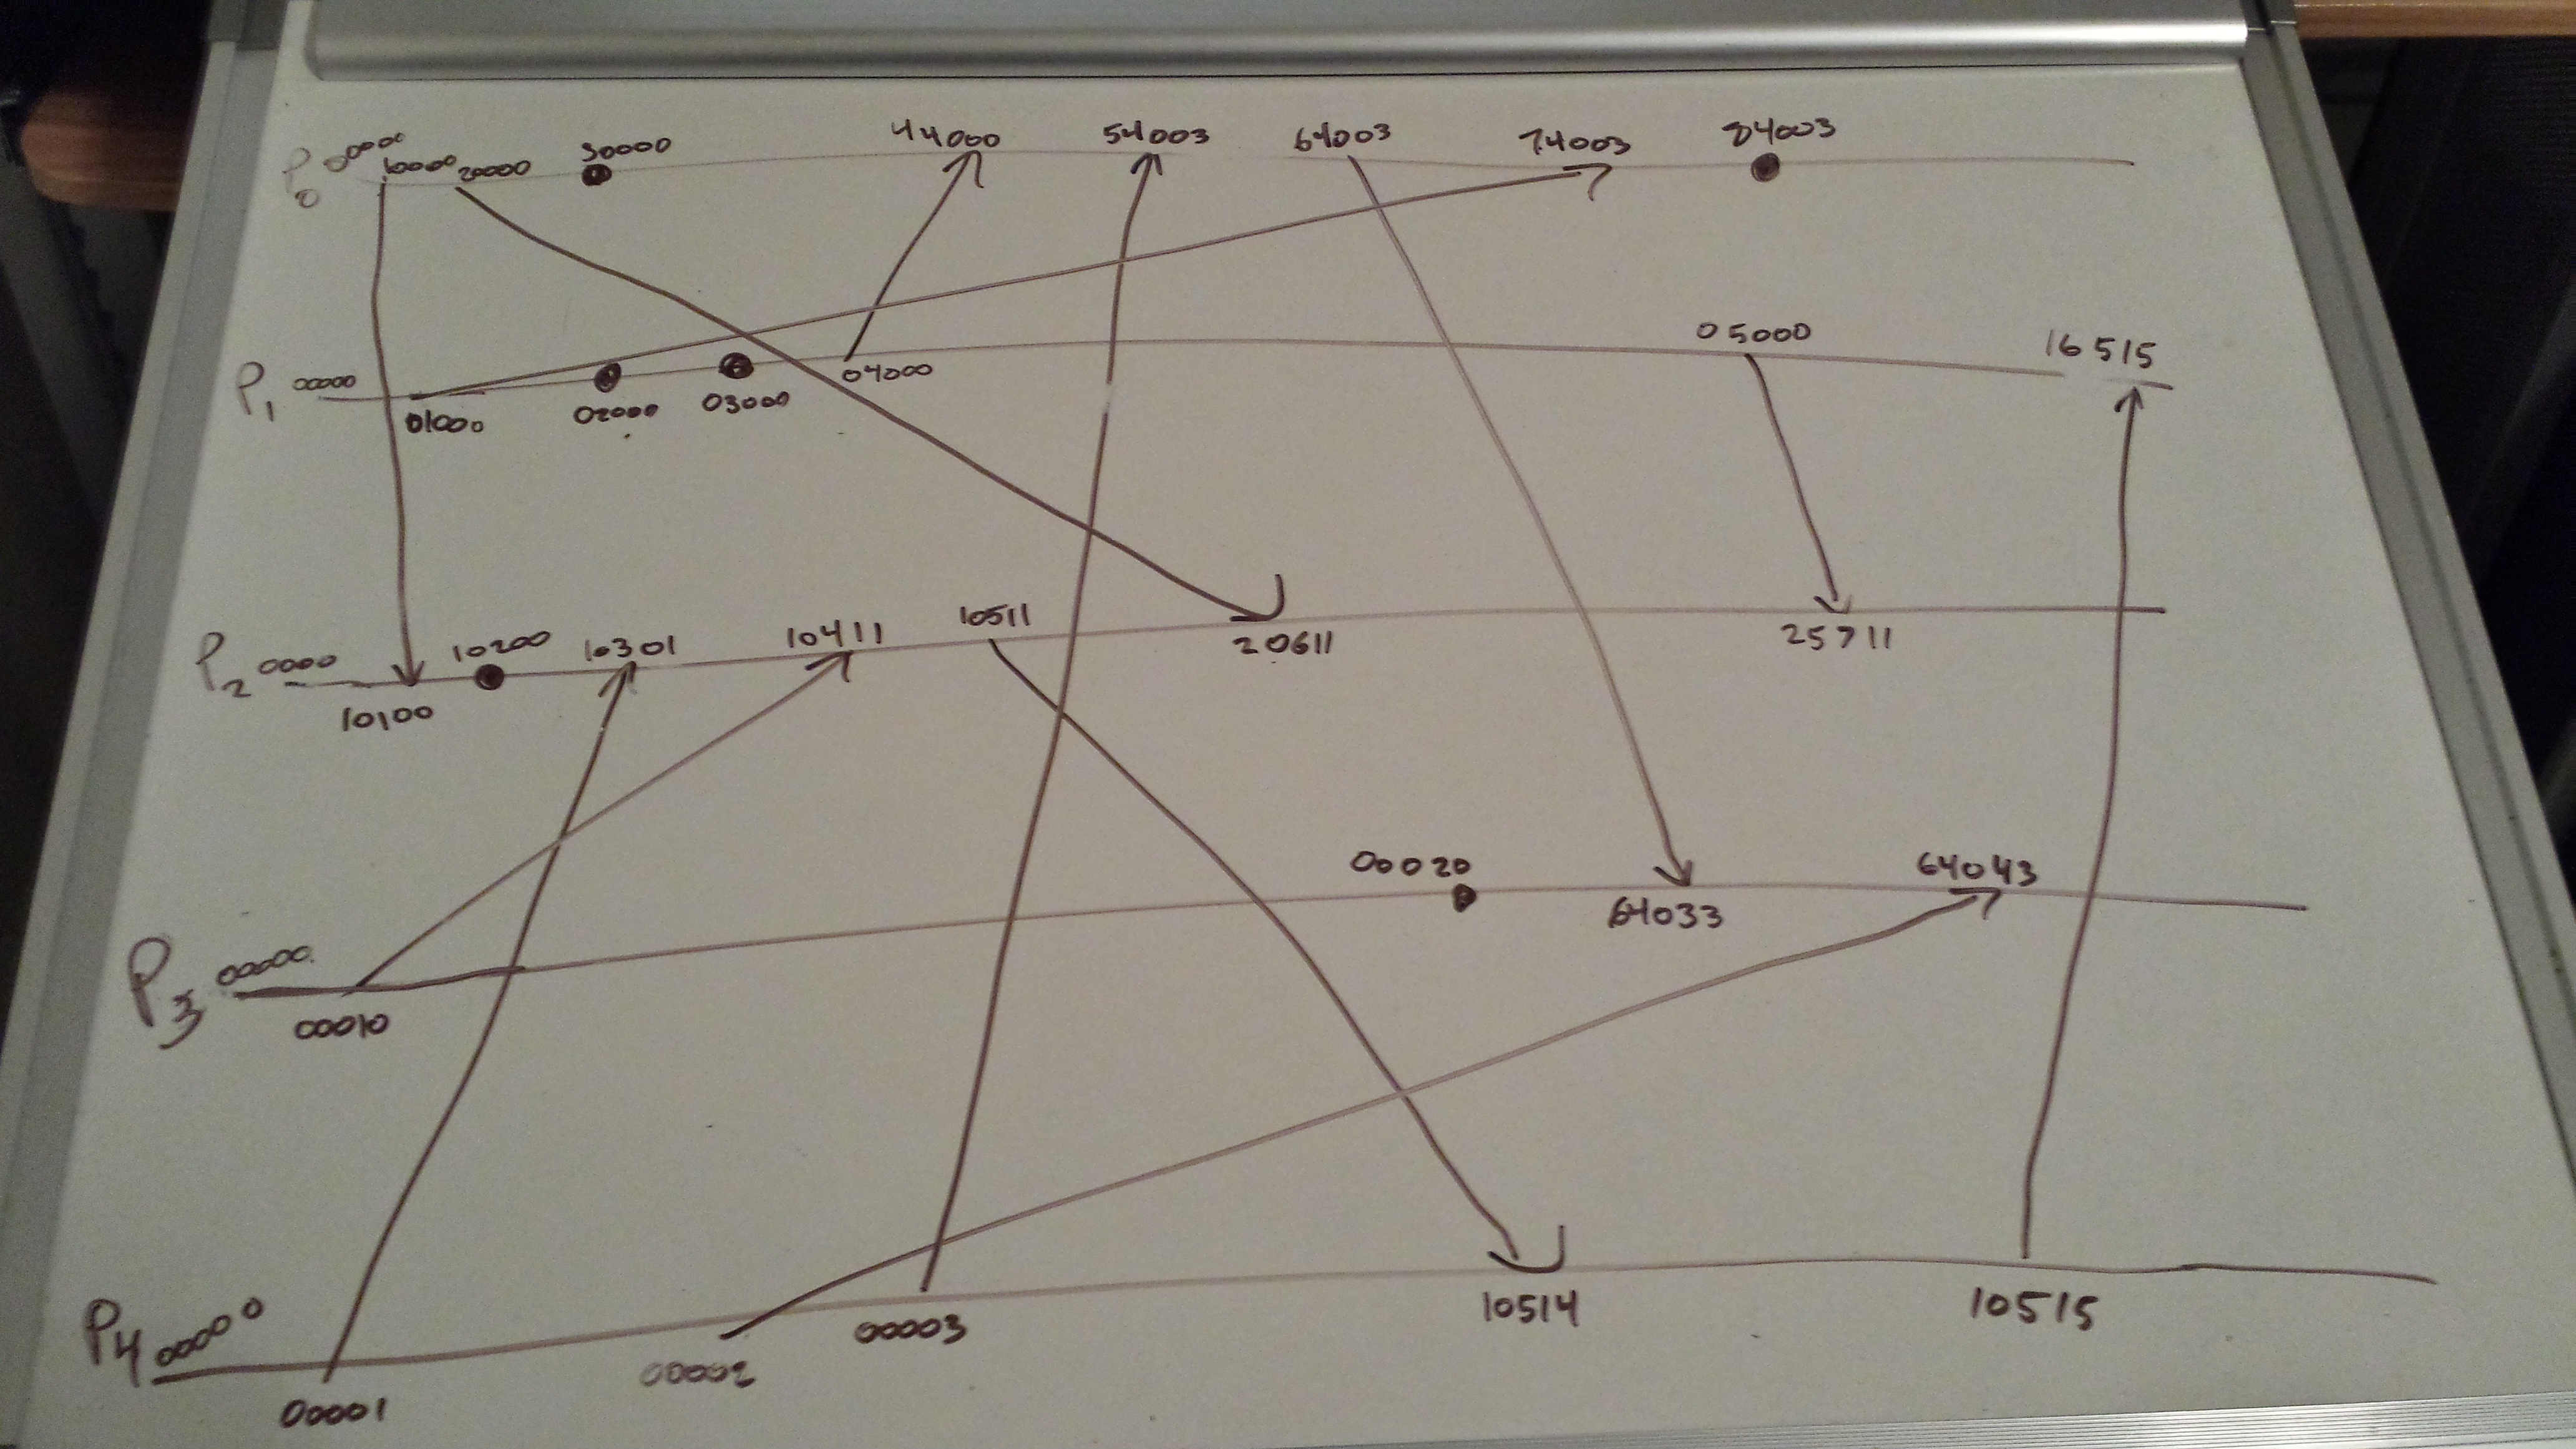 P0 00000 10000 20000 30000 44000 54003 64003 74003 84003
P1 00000 01000 02000 03000 04000 05000 16515
P2 0000 10100 10200 10301 10411 10511 20611 25711
P3 00000 00010 00020 64033 64043
P4 00000 00001 00002 00003 10514 10515